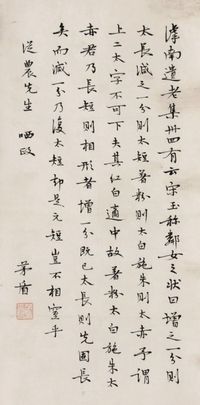 滹南遺老集卅四有云宋玉称鄰女之状曰增之一分则
太長减之一分则太短著粉则太白施朱则太赤予謂
上二太字不可下夫其红白適中故著粉太白施朱太
赤若乃長短则相形者增一分既已太長则先固長
矣而减一分乃復太短却是元短豈不相窒乎
從農先生 哂政
茅盾